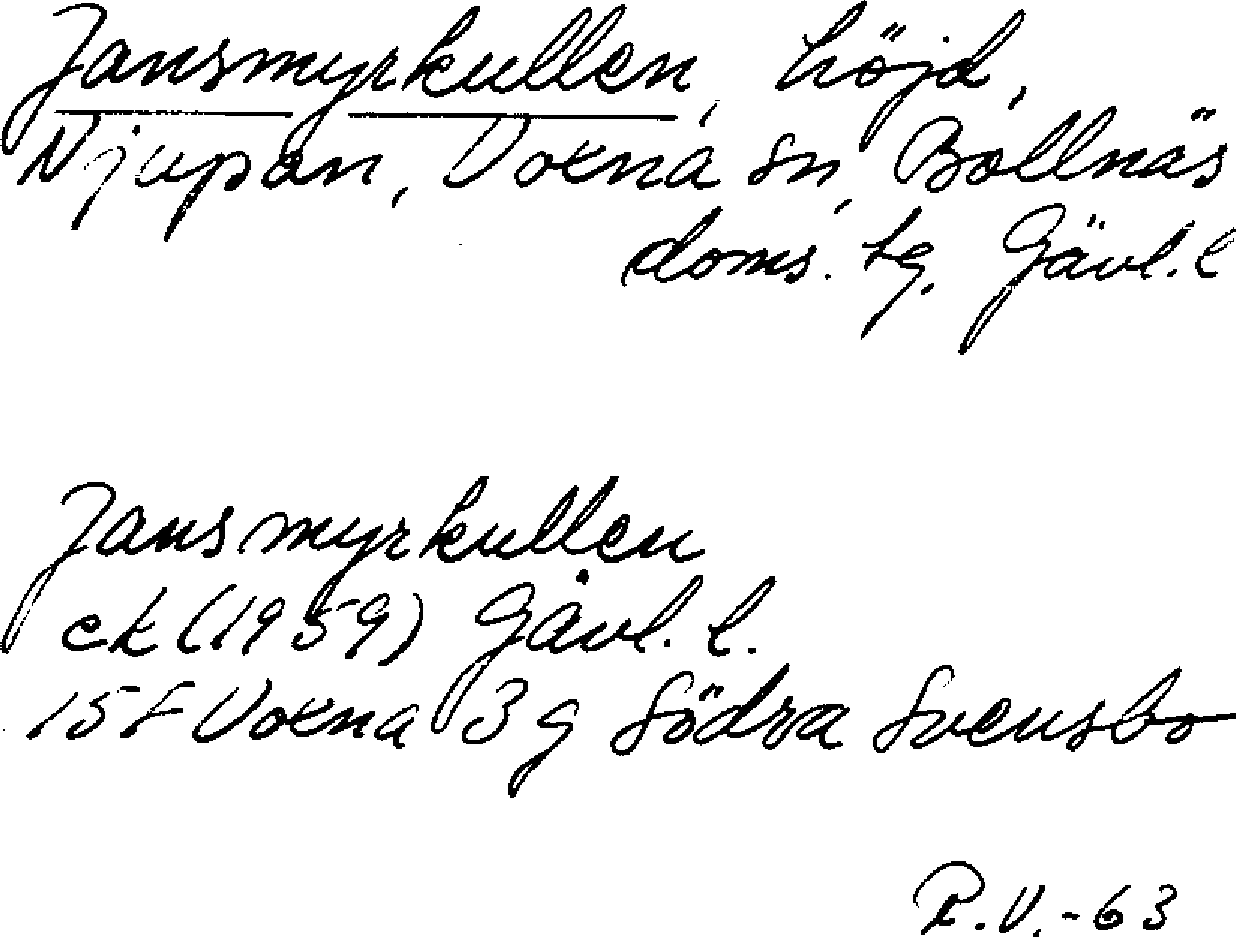 Jansmyrkullen, höjd,
Njupan, Voxna sn, Bollnäs
doms. tg. Gävl. l
Jansmyrkullen
ek (1959) Gävl. l.
15F Voxna 3g Södra Svensbo
R.V.-63